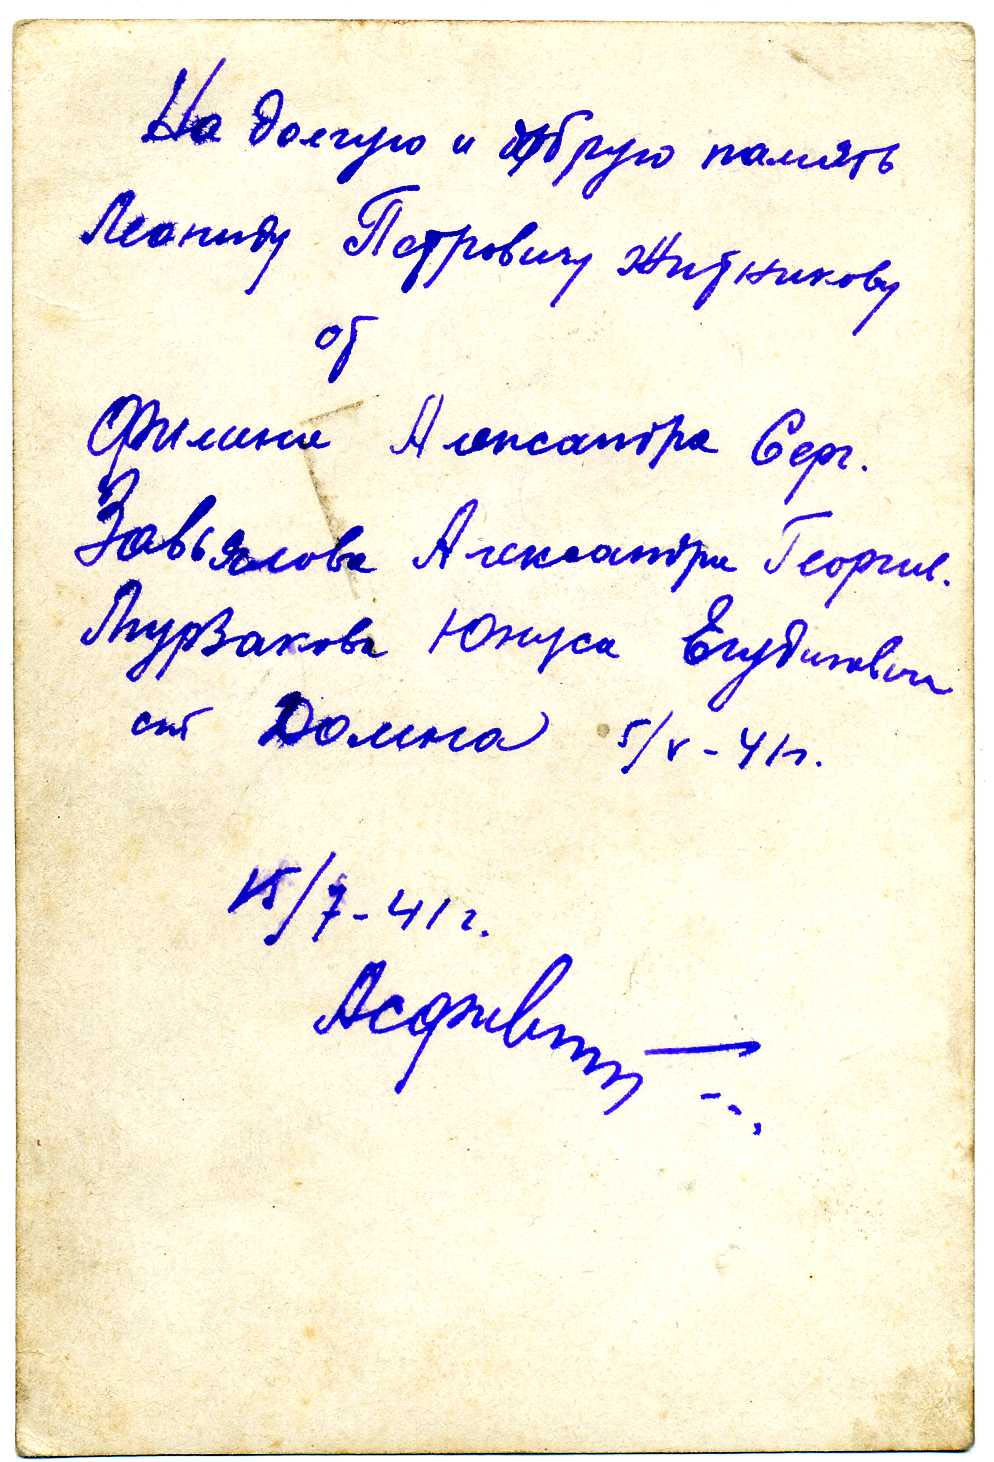 На долгую и добрую память
Леониду Петровичу Житникову
от
Филина Александра Серг.
Завьялова Александра Георгиев.
Мурзакова Юнуса
ст Долина 5/V-41г.
15/7-41г.